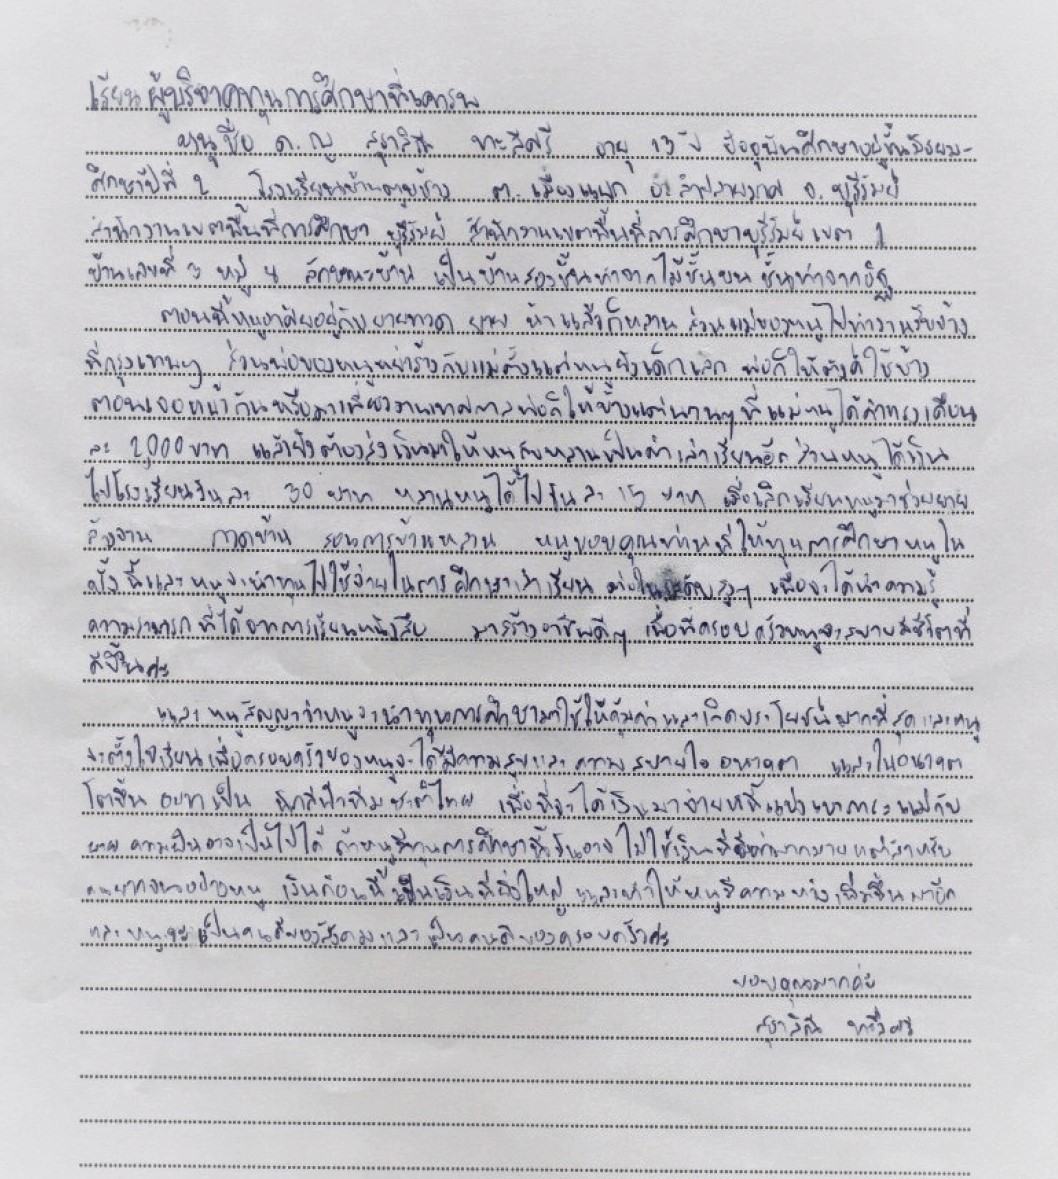 เรียนผู้บริจาคทุนการศึกษาที่เคารพ
หนูชื่อ ด.ญ อายุ 13 ปี ปัจจุบันศึกษาอยู่ชั้นมัธยม-
ศึกษาปีที่ 2 โรงเรียนบ้าน ต. เมืองแฝก อ. ลำปลายมาศ จ. บุรีรัมย์
สำนักงานเขตพื้นที่การศึกษา บุรีรัมย์ สำนักงานเขตพื้นที่การศึกษาบุรีรัมย์ เขต 1
บ้านเลขที่ 3 หมู่ 4 ลักษณะบ้าน เป็นบ้านสองชั้นทำจากไม้ชั้นบน ชั้นทำจากอิฐ
ตอนนี้หนูอาศัยอยู่กับยายทวด ยาย น้า แล้วก็หลาน ส่วนแม่ของหนูไปทำงานรับจ้าง
ที่กรุงเทพๆ ส่วนพ่อของหนูหย่าร้างกับแม่ตั้งแต่หนูยังเด็กเล็ก พ่อก็ให้ตังค์ใช้บ้าง
ตอนเจอหน้ากันหรือ งานเทศกาลพ่อก็ให้บ้างแต่นานๆที แม่หนูได้ค่าแรงเดือน
ละ 2,000 บาท แล้วยังต้องส่งเงินมาให้หนูกับหลานเป็นค่าเล่าเรียนอีก ส่วนหนูได้เงิน
ไปโรงเรียนวันละ 30 บาท หลานหนูได้ไปวันละ 15 บาท เมื่อเลิกเรียนหนูมาช่วยยาย
ล้างจาน กวาดบ้าน สอนการบ้านหลาน หนูขอบคุณท่านที่ให้ทุนการศึกษาหนูใน
ครั้งนี้และหนูจะนำทุนไปใช้จ่ายในการศึกษาเล่าเรียน ต่อใน สูงๆ เพื่อจะได้นำความรู้
ความสามารถที่ได้จากการเรียนหนังสือ มาสร้างอาชีพดีๆ เพื่อที่ครอบครัวหนูจะสบายมีชีวิตที่
ดีขึ้นค่ะ
และหนูสัญญาว่าหนูจะนำทุนการศึกษามาใช้ให้คุ้มค่าและเกิดประโยชน์มากที่สุดและหนู
จะตั้งใจเรียนเพื่อครอบครัวของหนูจะได้มีความสุขและความสบายใจ และในอนาคต
โตขึ้น อยากเป็น นักกีฬาทีมชาติไทย เพื่อที่จะได้เงินมาจ่ายหนี้แบ่งเบาภาระแม่กับ
ยาย ความฝันอาจเป็นไปได้ ถ้าหนูมีทุนการศึกษานี้ มันอาจไม่ใช่เงินที่ มากมาย แต่สำหรับ
คนยากจนอย่างหนู เงินก้อนนี้เป็นเงินที่ยิ่งใหญ่ และทำให้หนูมีความหวังเพิ่มขึ้นมาอีก
และหนูจะเป็นคนดีของสังคมและเป็นคนดีของครอบครัวค่ะ
ขอบคุณมากค่ะ